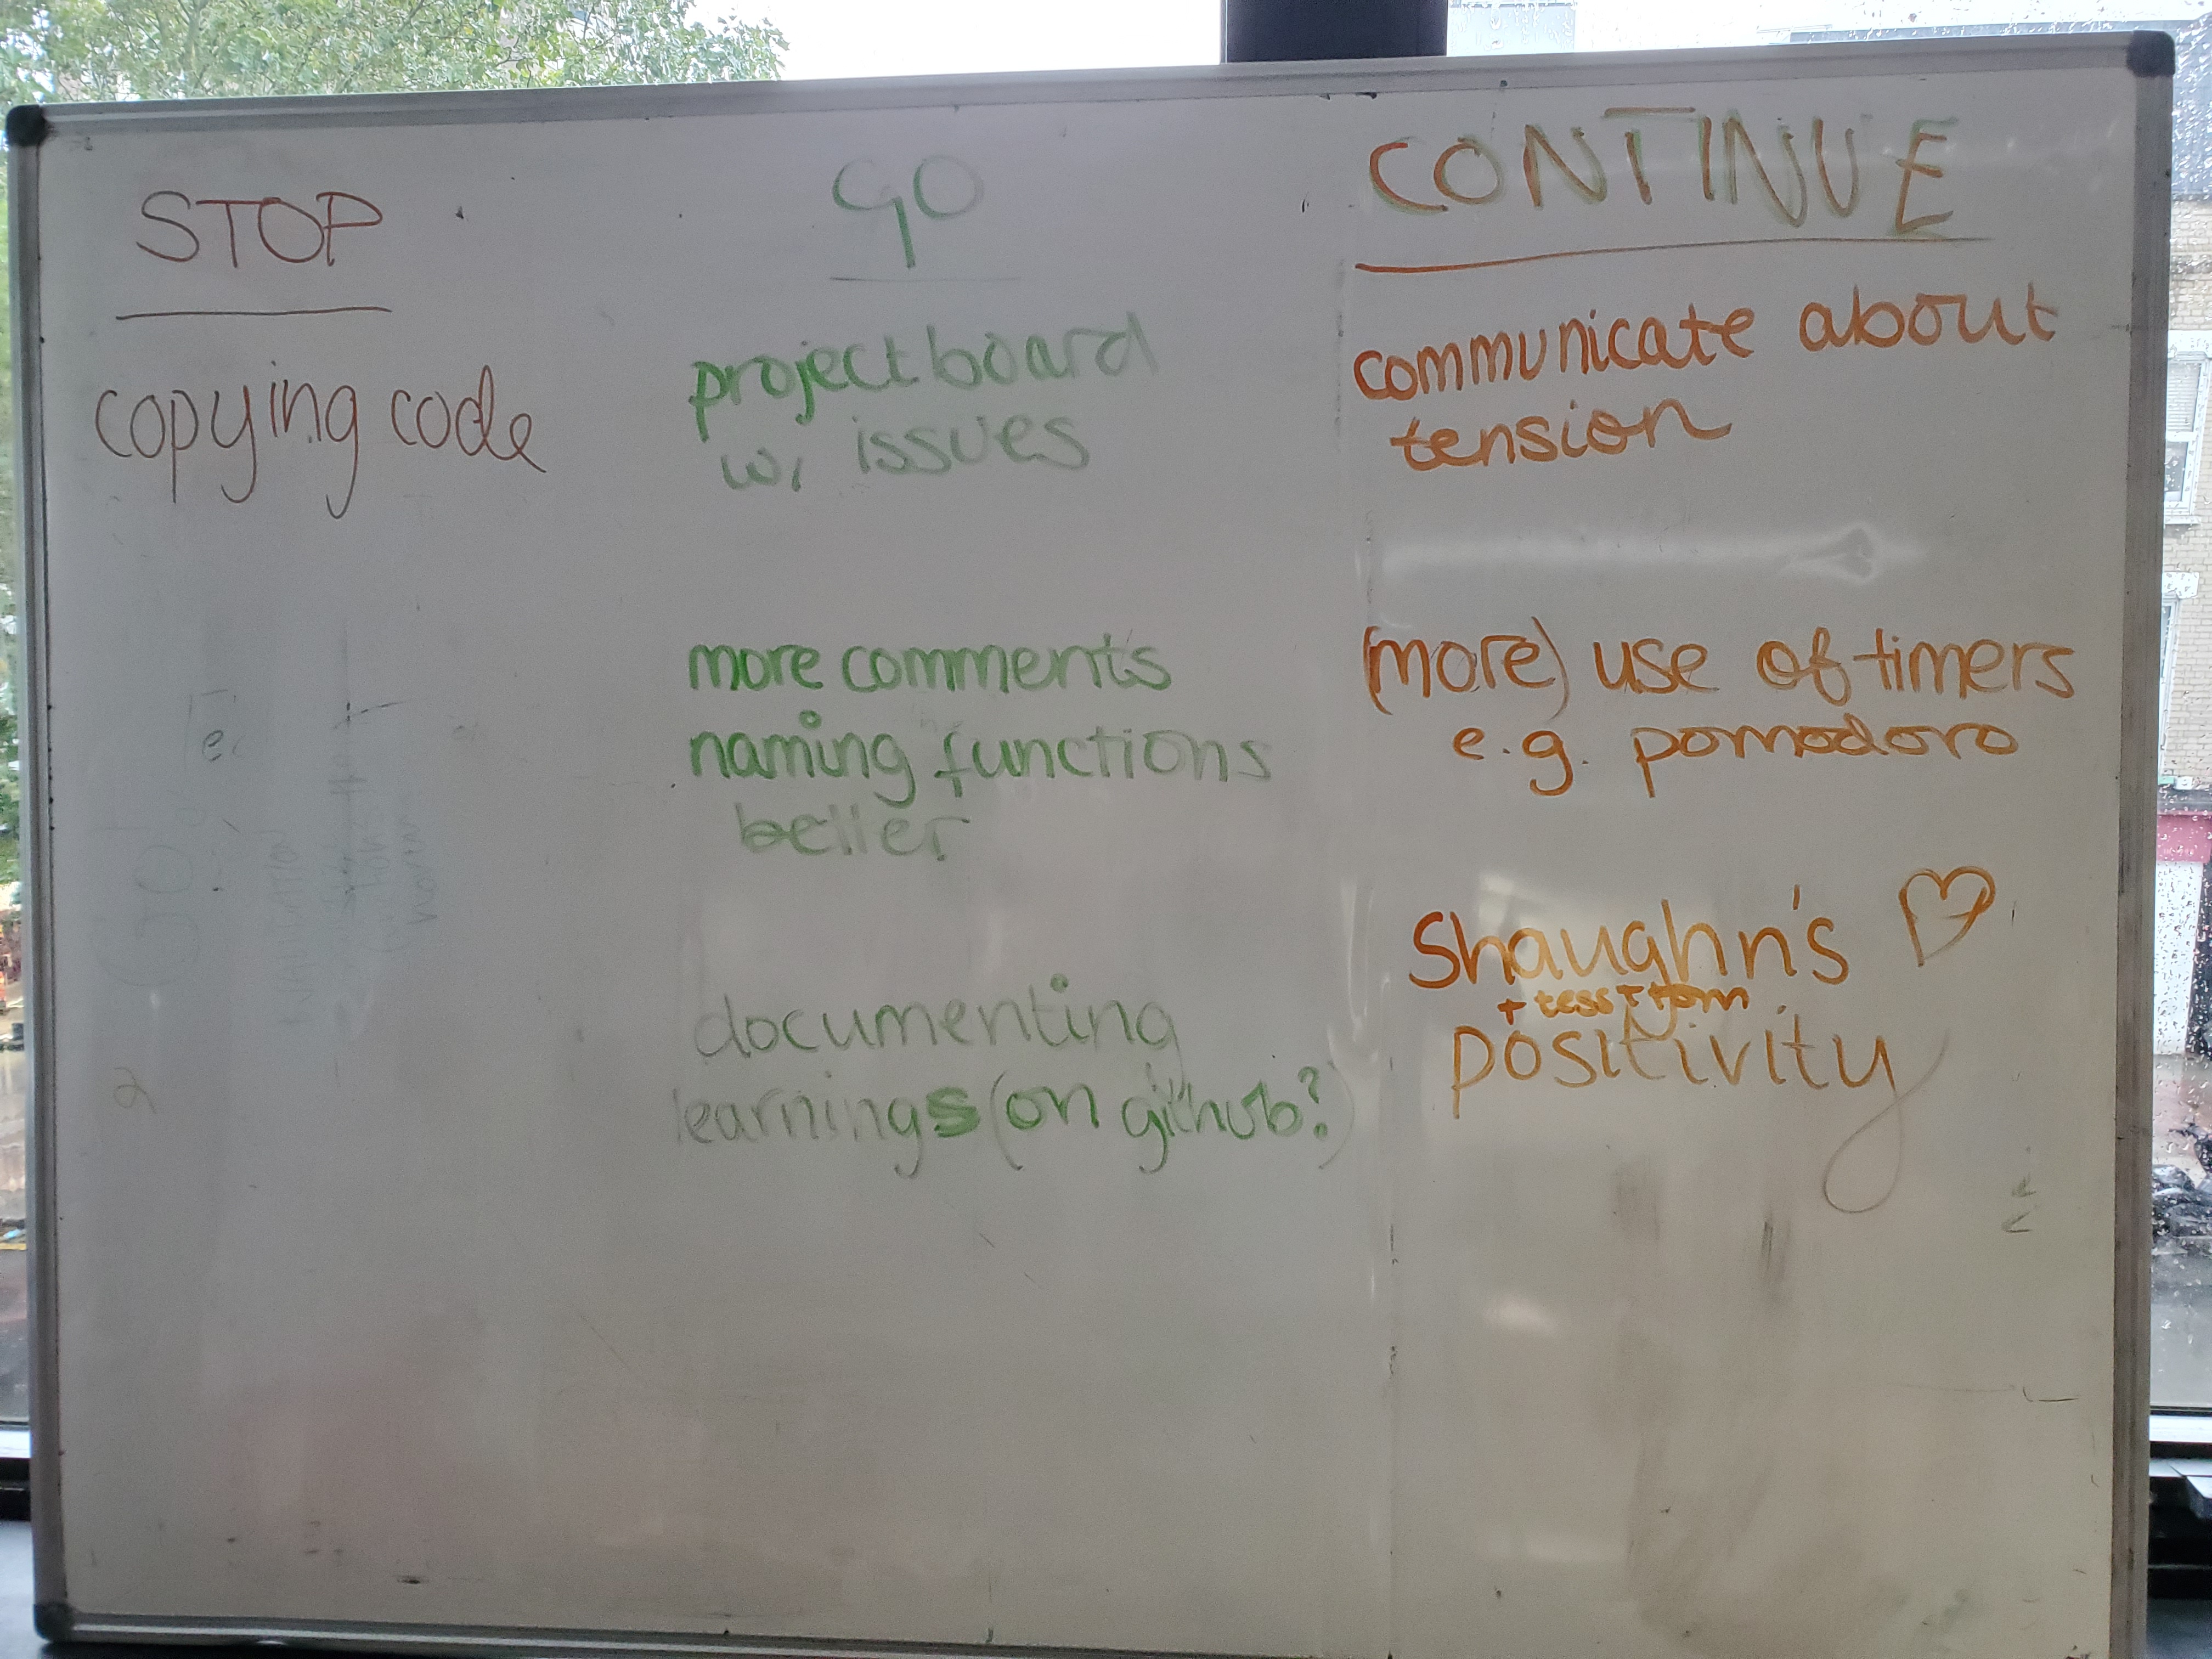 STOP
copying code
GO
project board
w/ issues
more comments
naming functions
better
documenting
learnings (on github?)
CONTINUE
communicate about
tension
(more) use of timers
e.g. pomodoro
Shaughn's
+ tess + tom
positivity